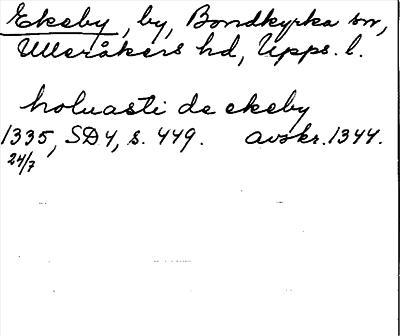 Ekeby, by, Bondkyrka sn,
Ulleråkers hd, Upps. l.
holuasti de ekeby
1335, SD4, s. 449. avskr. 1344.
24/7